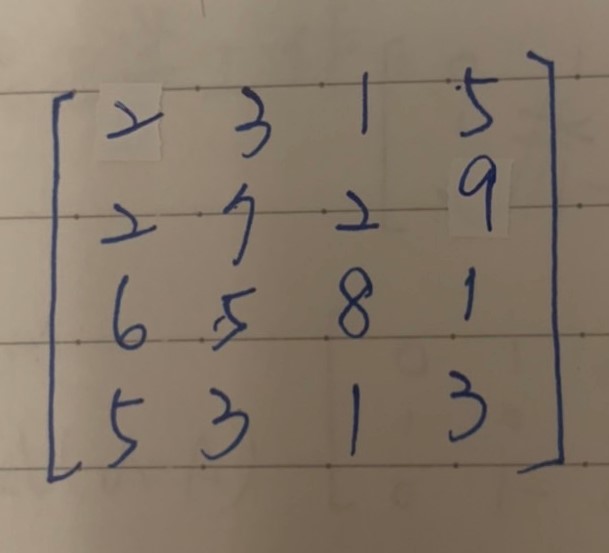 2 3 1 5
2 7 2 9
6 5 8 1
5 3 1 3